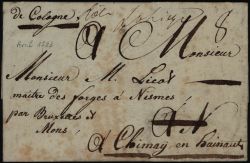 de Cologne
8
à Monsieur
Monsieur M. Licot
maitre des forges à Nismes
par Bruxelles et
Mons
à Chimay en Hainaut